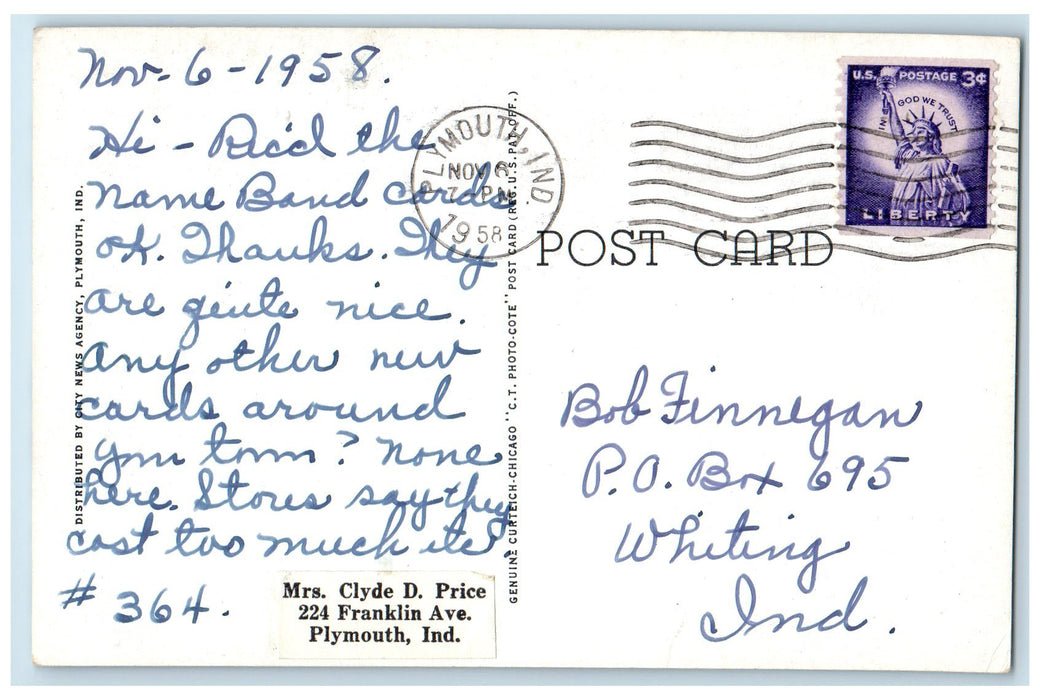 Nov. 6 - 1958.
Hi - Rec'd the
name Band cards
ok. Thanks. They
are qiute nice.
Any other new
cards around
your town? None
here. Stores say they
cost too much etc.
# 364.
Mrs. Clyde D. Price
224 Franklin Ave.
Plymouth, Ind.
DISTRIBUTED BY CITY NEWS AGENCY, PLYMOUTH, IND.
GENUINE CURTEICH-CHICAGO "C.T. PHOTO-COTE" POST CARD (REG. U.S. PAT. OFF.)
PLYMOUTH, IND
NOV 6
7 PM
1958
U.S. POSTAGE 3¢
IN GOD WE TRUST
LIBERTY
POST CARD
Bob Finnegan
P.O. Box 695
Whiting
Ind.